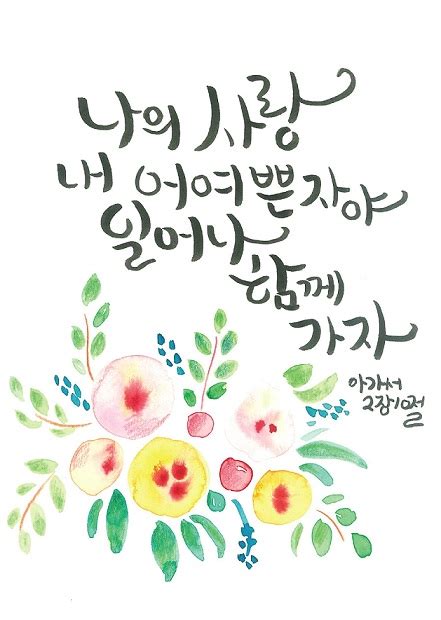 나의 사랑
내 어여쁜 자야
일어나
함께
가자
아가서
2장10절